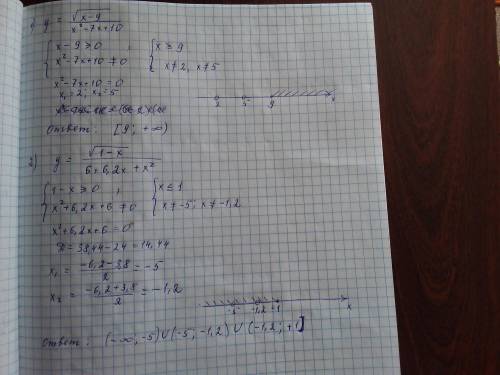 1) y = √(x-9) / (x²-7x+10)
{ x-9 ≥ 0 , { x ≥ 9
{ x²-7x+10 ≠ 0 { x≠2, x≠5
x²-7x+10 = 0
x₁=2; x₂=5
2 5 9 x
Ответ: [9; +∞)
2) y = √(1-x) / (6+6,2x+x²)
{ 1-x ≥ 0 , { x ≤ 1
{ x²+6,2x+6 ≠ 0 { x≠-5; x≠-1,2
x²+6,2x+6 = 0
D = 38,44-24 = 14,44
x₁ = (-6,2-3,8)/2 = -5
x₂ = (-6,2+3,8)/2 = -1,2
-5 -1,2 1 x
Ответ: (-∞; -5)∪(-5; -1,2)∪(-1,2; +1]